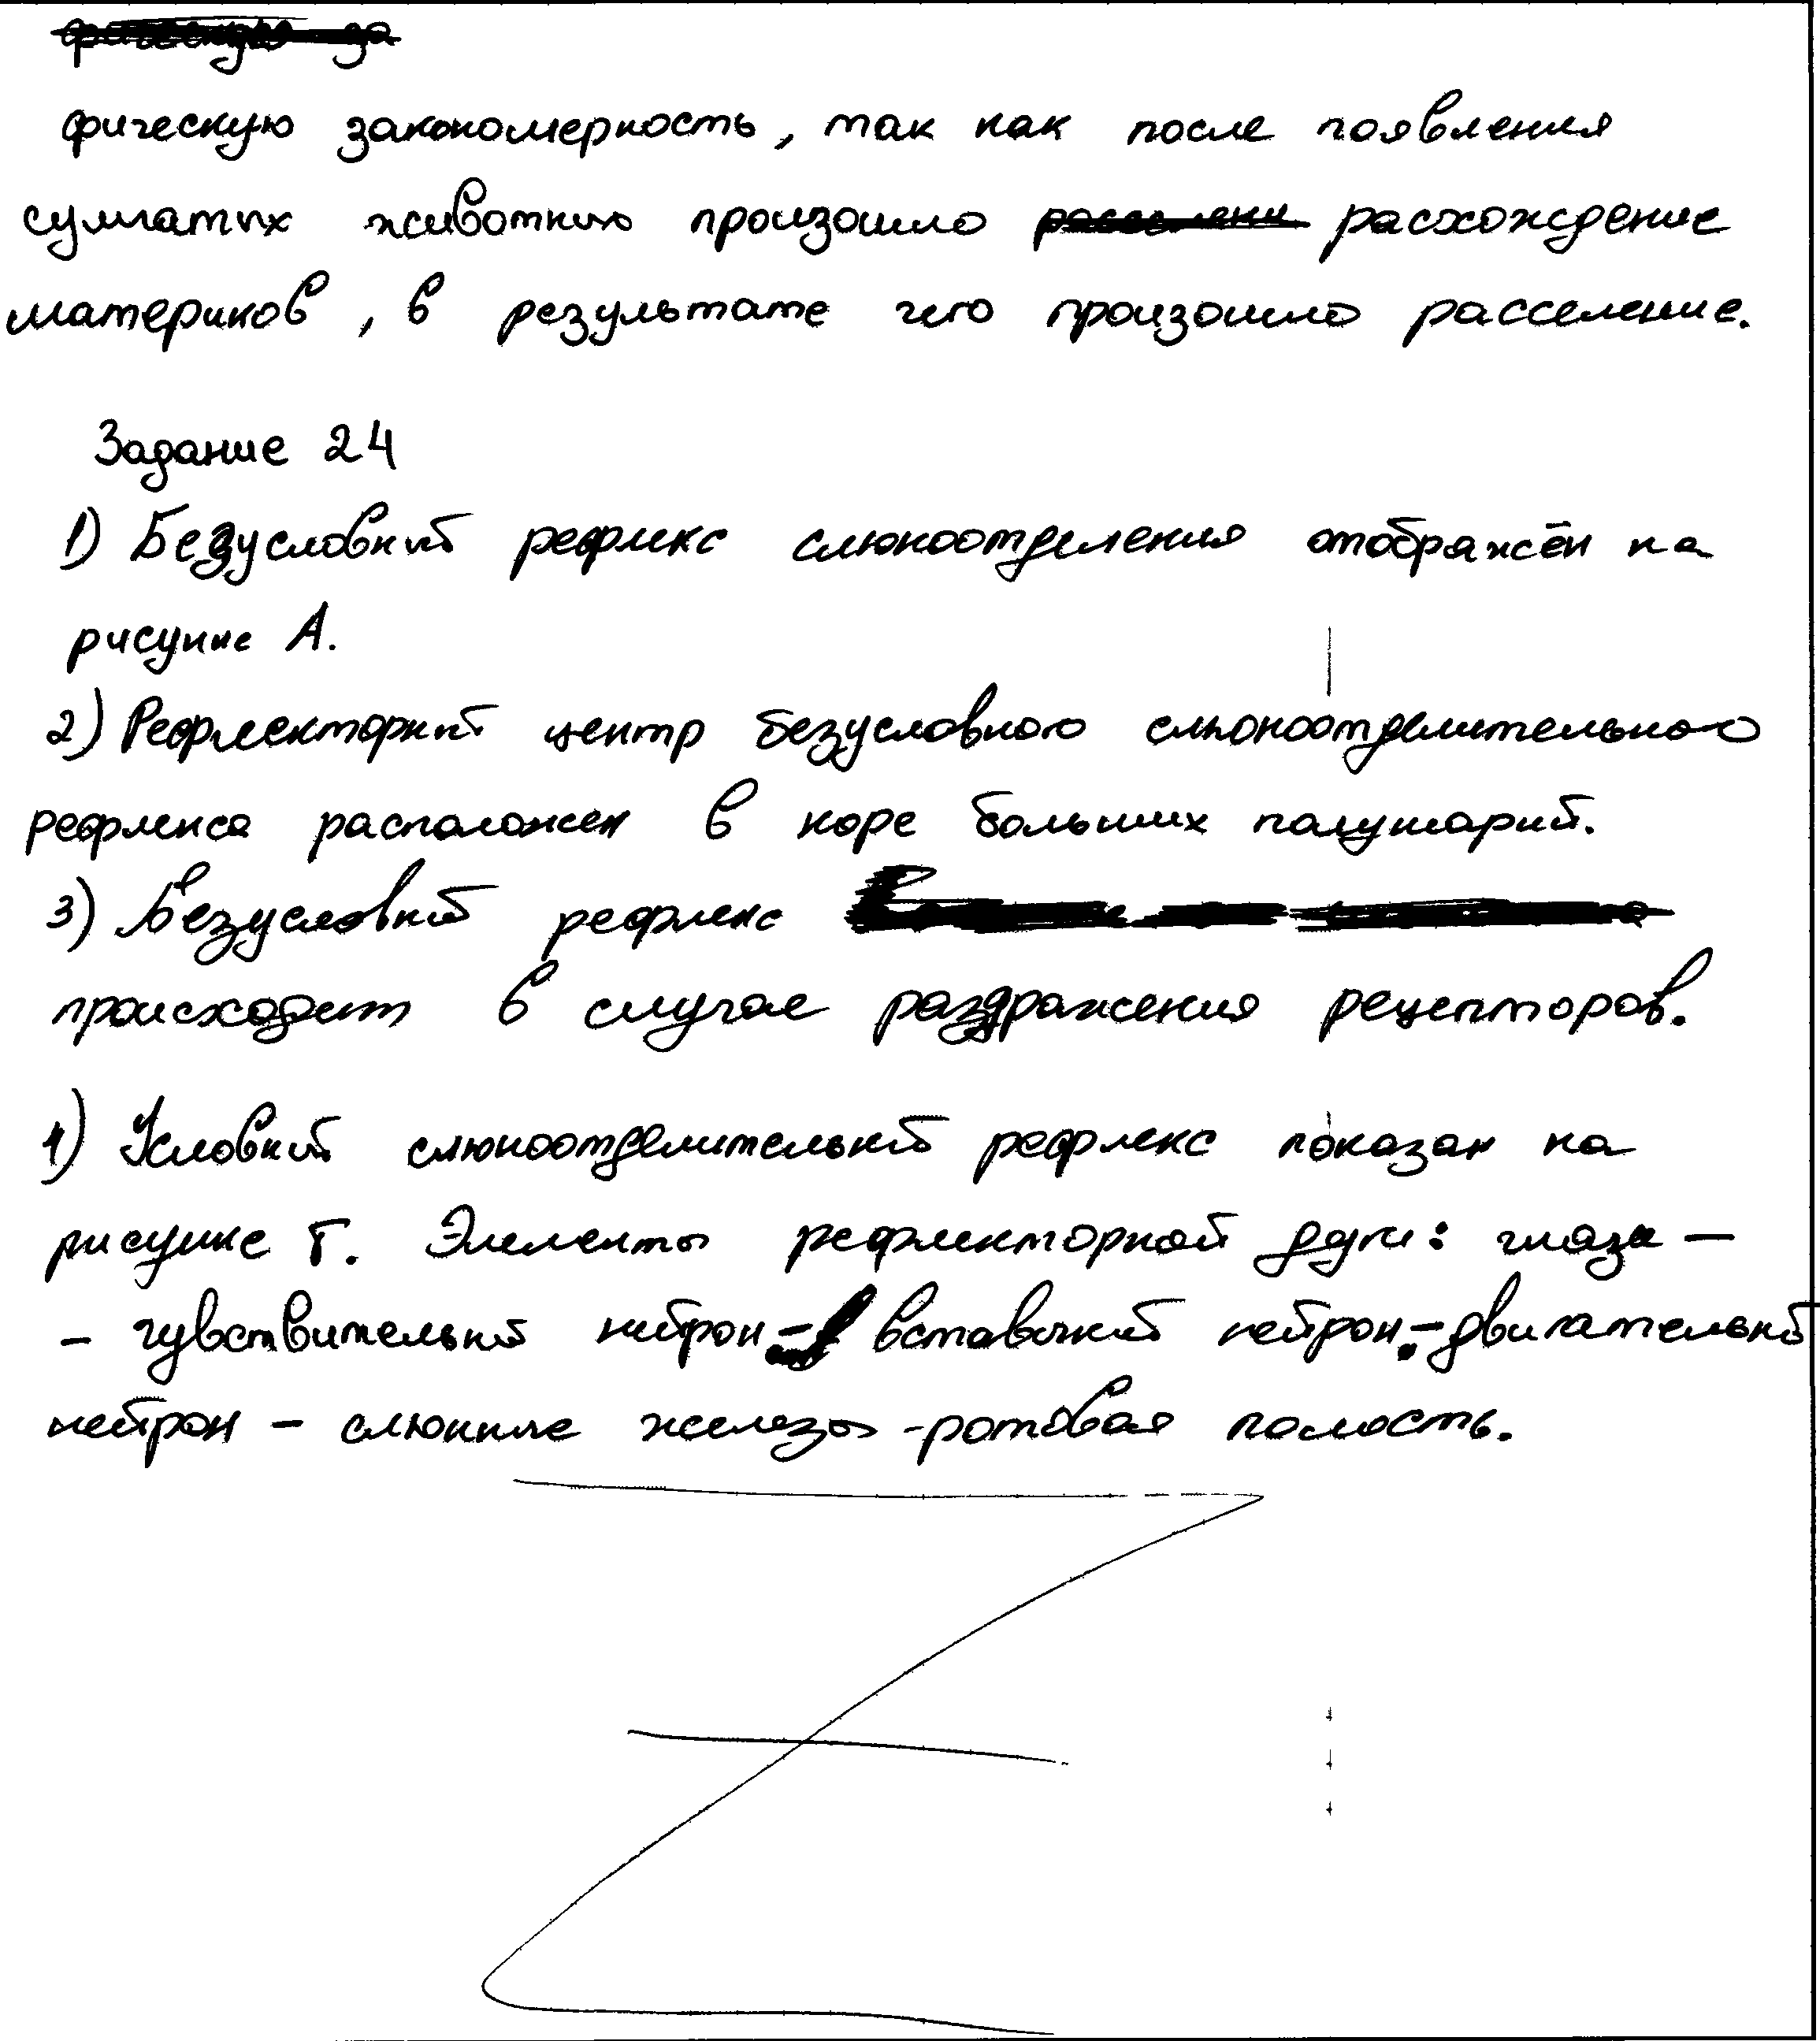 фическую закономерность, так как после появления
сумчатых животных произошло расхождение
материков, в результате чего произошло расселение.
Задание 24
1) Безусловный рефлекс слюноотделения отображён на
рисунке А.
2) Рефлекторный центр безусловного слюноотделительного
рефлекса расположен в коре больших полушарий.
3) Безусловный рефлекс
происходит в случае раздражения рецепторов.
4) Условный слюноотделительный рефлекс показан на
рисунке Г. Элементы рефлекторной дуги: глаза –
– чувствительный нейрон – вставочный нейрон – двигательный
нейрон – слюнные железы - ротовая полость.